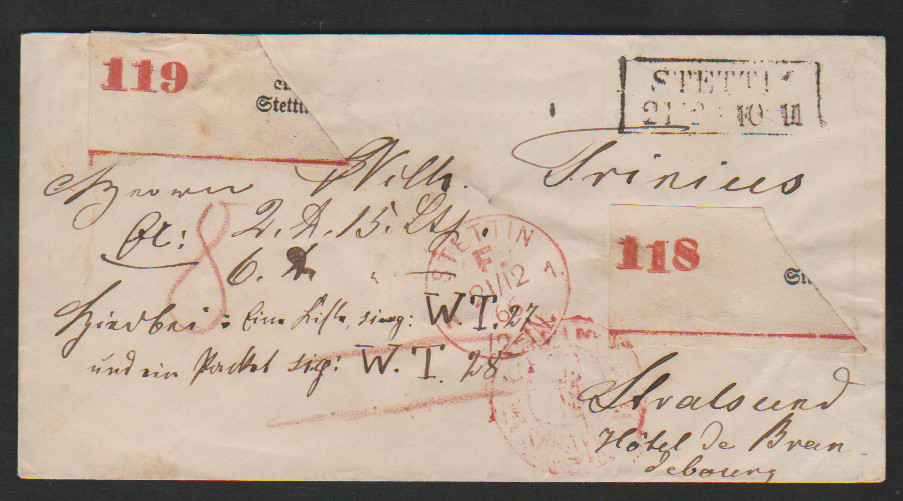 119
Stetti
STETTI
21 12 10 11
Herrn Wilh. Trinius
2. D. 15. Lth.
6. D. " "
8
STETTIN
F.
21/12
1.
118
St
Hierbei: Eine Kiste, sig: W T. 27
und ein Packet sig: W. T. 28
Stralsund
Hôtel de Bran
debourg